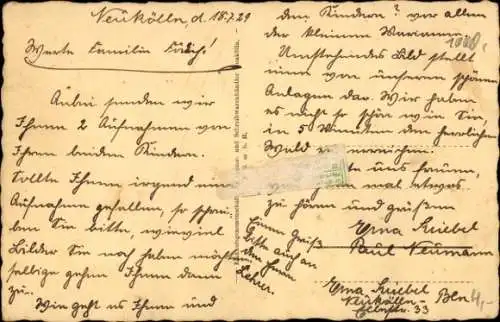 Neukölln, d. 18.7.29
Werte Familie
Anbei senden wir
Ihnen 2 Aufnahmen von
Ihren beiden Kindern.
Sollte Ihnen irgend eine
Aufnahme gefallen, so schrei-
ben Sie bitte, wieviel
Bilder Sie noch haben möchten
selbige gehen Ihnen dann
zu.
Wie geht es Ihnen und
den Kindern? vor allem
der kleinen Marianne
Umstehendes Bild stellt
eine von unseren schönen
Anlagen dar. Wir haben
es nicht so schön wie Sie,
in 5 Minuten den herrlichen
Wald zu erreichen.
te uns freuen,
mal etwas
zu hören und grüßen
Erna Kriebel
Paul Neumann
Einen Gruß
bitte auch an
den Herrn
Lehrer.
Erna Kriebel
Neukölln- Bln
Elbestr. 33